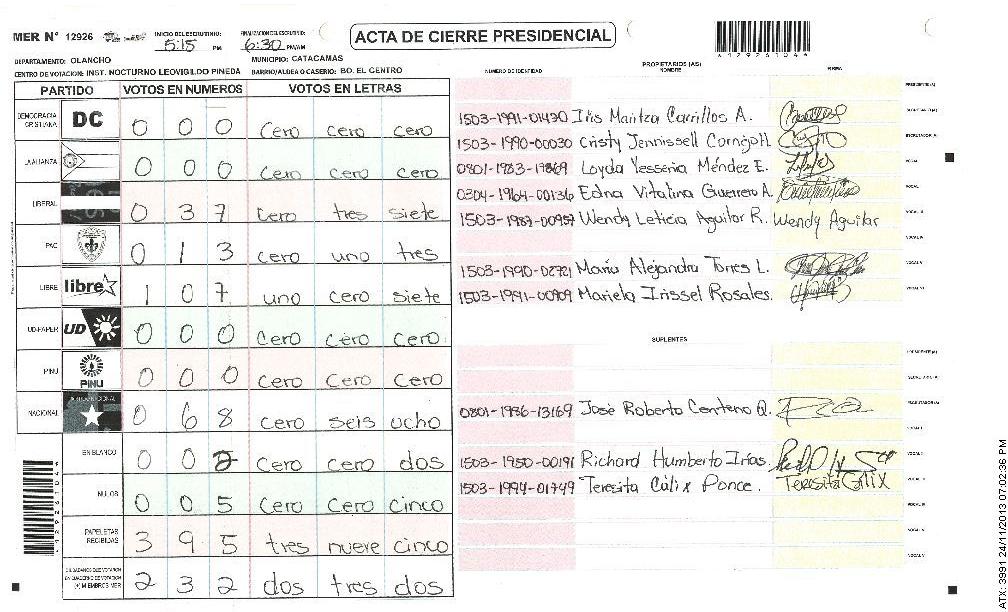 MER N° 12926
INICIO DEL ESCRUTINIO: 5:15 PM
FINALIZACION DEL ESCRUTINIO: 6:30 PM/AM
ACTA DE CIERRE PRESIDENCIAL
DEPARTAMENTO: OLANCHO MUNICIPIO: CATACAMAS
CENTRO DE VOTACION: INST. NOCTURNO LEOVIGILDO PINEDA BARRIO/ALDEA O CASERIO: BO. EL CENTRO
PARTIDO VOTOS EN NUMEROS VOTOS EN LETRAS
DEMOCRACIA CRISTIANA DC 0 0 0 Cero cero cero
LA ALIANZA 0 0 0 Cero cero cero
LIBERAL 0 3 7 Cero tres siete
PAC 0 1 3 cero uno tres
LIBRE libre 1 0 7 uno cero siete
UD-FAPER UD 0 0 0 Cero cero cero
PINU PINU 0 0 0 Cero Cero Cero
NACIONAL 0 6 8 cero seis ocho
EN BLANCO 0 0 2 Cero cero dos
NULOS 0 0 5 Cero Cero cinco
PAPELETAS RECIBIDAS 3 9 5 tres nueve cinco
CIUDADANOS QUE VOTARON EN CUADERNO DE VOTACION (+) MIEMBROS MER 2 3 2 dos tres dos
PROPIETARIOS (AS)
NUMERO DE IDENTIDAD NOMBRE FIRMA
PRESIDENTE (A)
1503-1991-01430 Iris Maritza Carrillos A. SECRETARIO (A)
1503-1990-00030 Cristy Jennissell Cornejo H. ESCRUTADOR (A)
0801-1983-19869 Loyda Yessenia Méndez E. VOCAL I
0304-1964-00136 Edna Vitalina Guerrero A. VOCAL II
1503-1987-00957 Wendy Leticia Aguilar R. Wendy Aguilar VOCAL III
VOCAL IV
1503-1990-02721 María Alejandra Torres L. VOCAL V
1503-1991-00909 Mariela Irissel Rosales. VOCAL VI
SUPLENTES
PRESIDENTE (A)
SECRETARIO (A)
0801-1986-13169 José Roberto Centeno Q. ESCRUTADOR (A)
VOCAL I
1503-1950-00191 Richard Humberto Irías. VOCAL II
1503-1994-01749 Teresita Cálix Ponce. Teresita Calix VOCAL III
VOCAL V
ATX: 3991 24/11/2013 07:02:36 PM